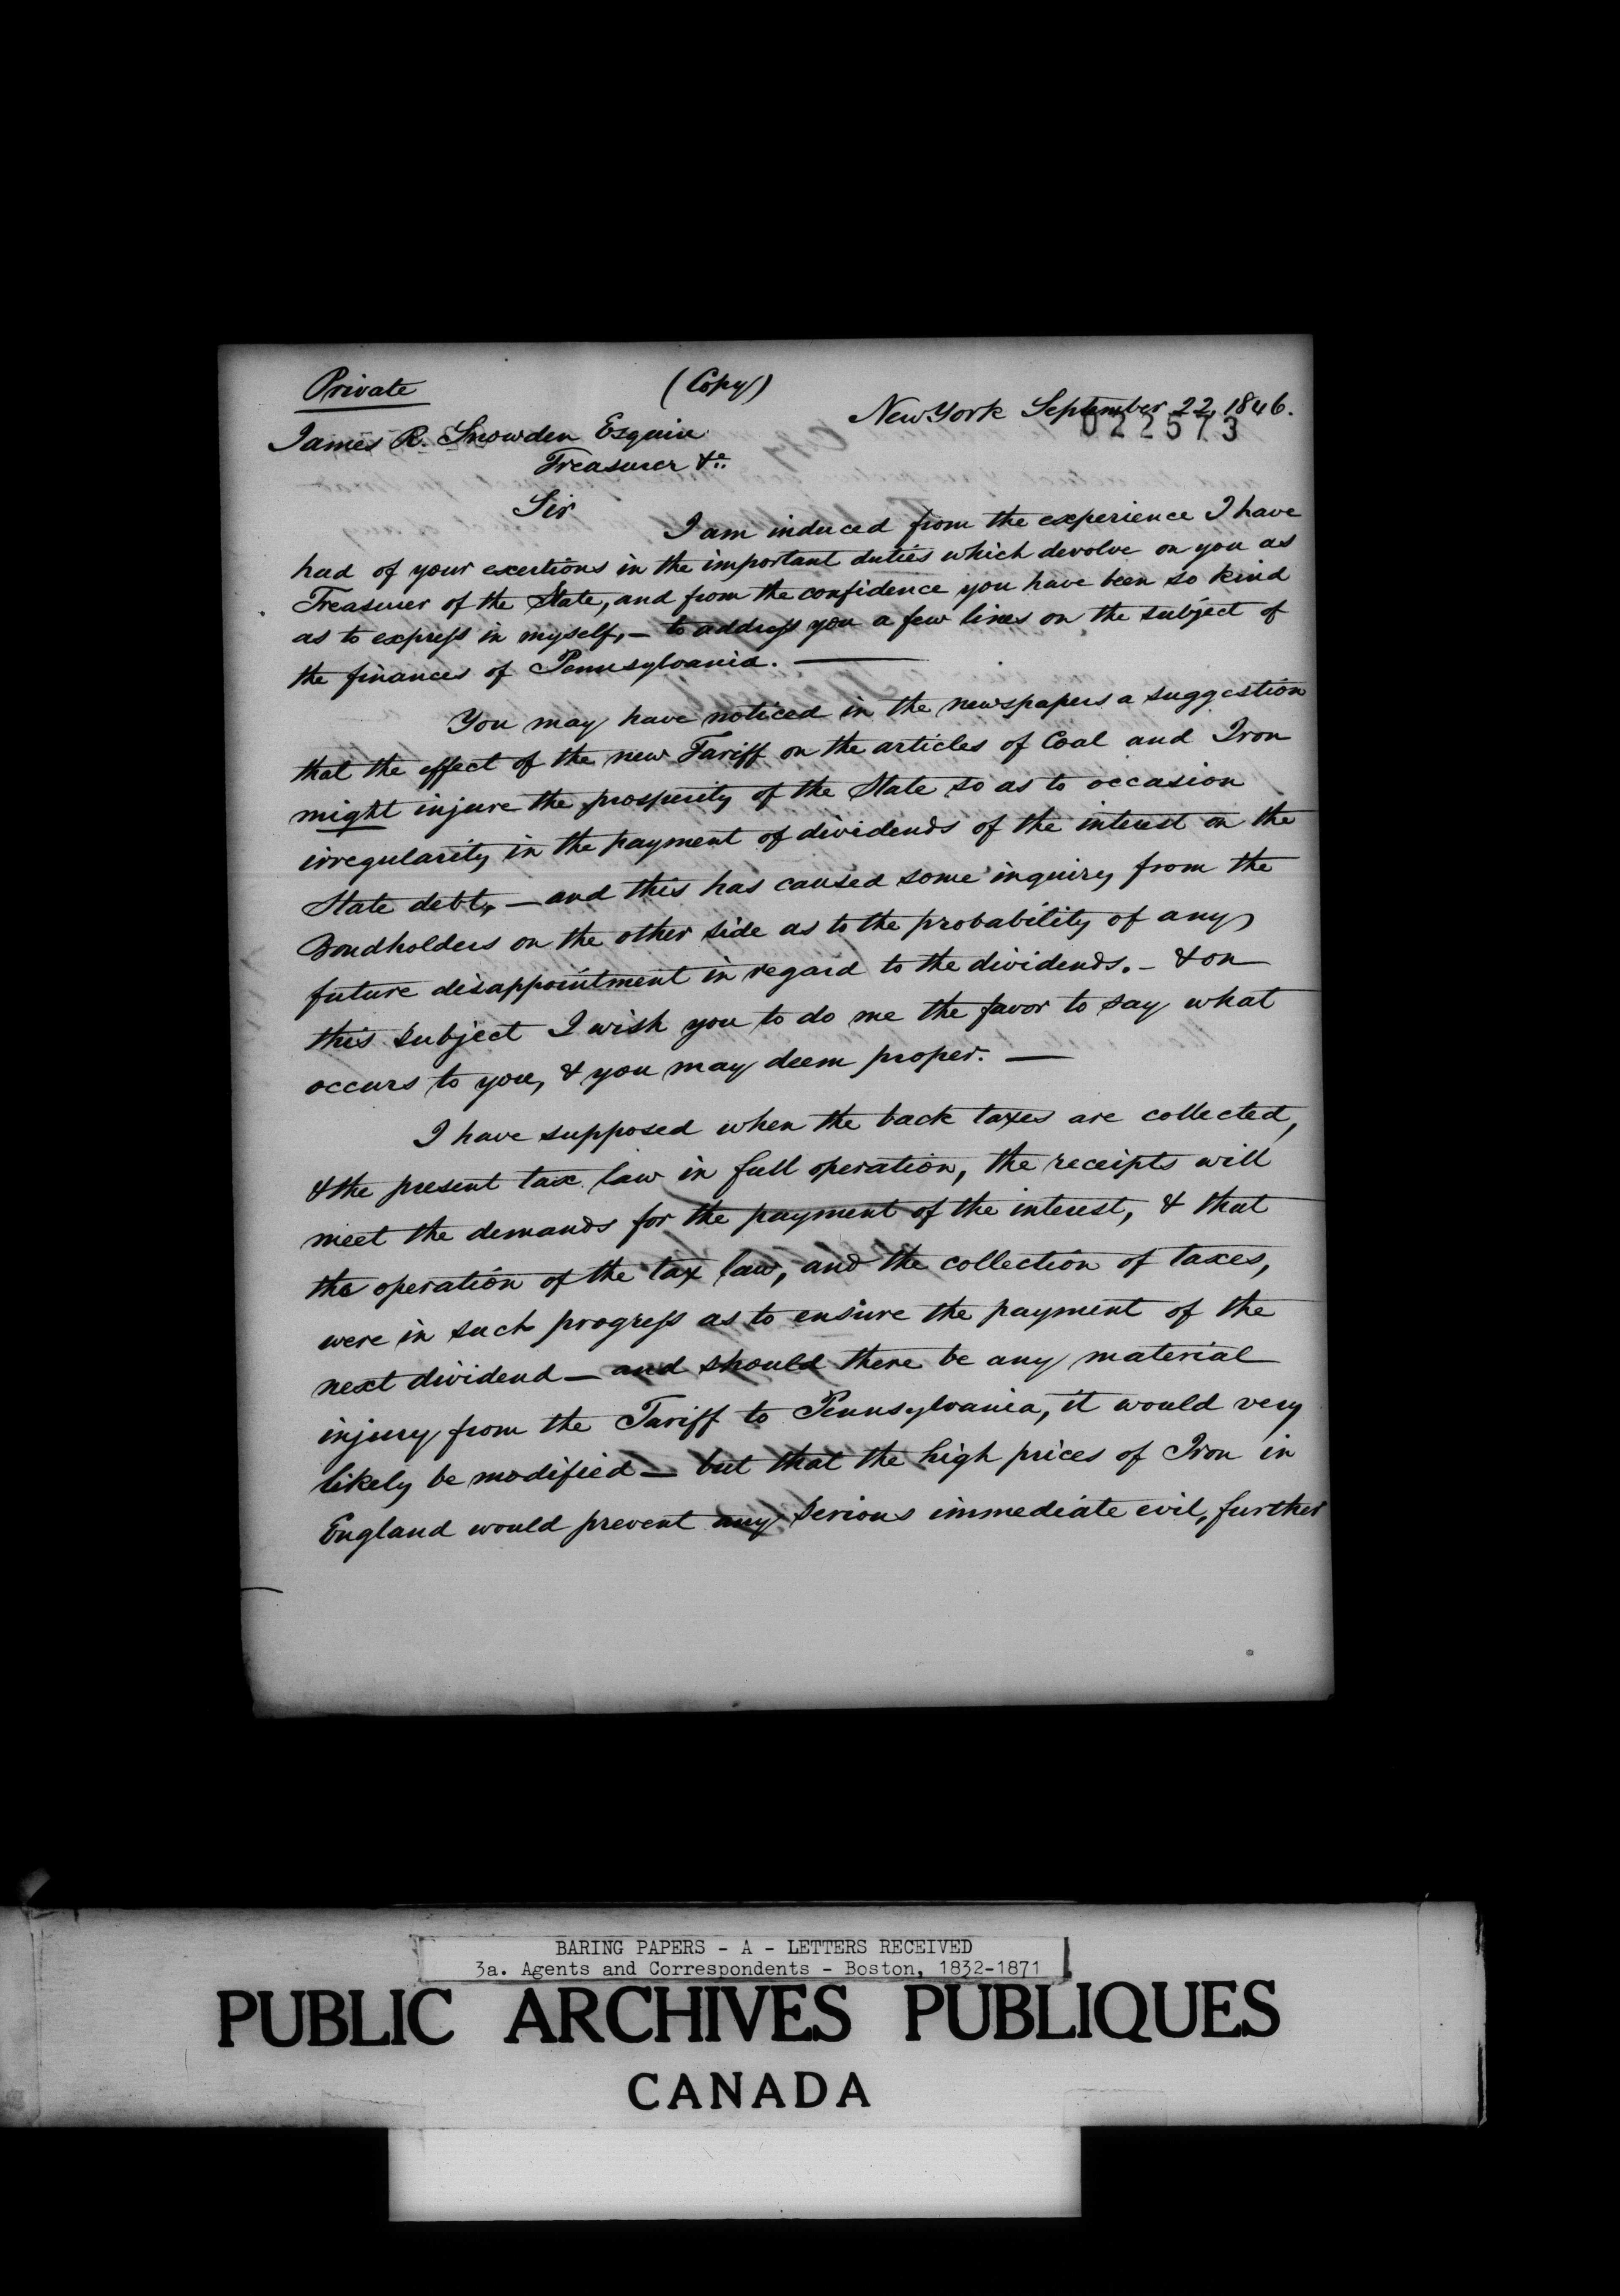 Private
(Copy)
New York September 22, 1846.
022573
James R. Snowden Esquire
Treasurer &c.
Sir
I am induced from the experience I have
had of your exertions in the important duties which devolve on you as
Treasurer of the State, and from the confidence you have been so kind
as to express in myself, — to address you a few lines on the subject of
the finances of Pennsylvania. —
You may have noticed in the newspapers a suggestion
that the effect of the new Tariff on the articles of Coal and Iron
might injure the prosperity of the State so as to occasion
irregularity in the payment of dividends of the interest on the
State debt, — and this has caused some inquiry from the
Bondholders on the other side as to the probability of any
future disappointment in regard to the dividends. — & on
this subject I wish you to do me the favor to say what
occurs to you, & you may deem proper. —
I have supposed when the back taxes are collected,
& the present tax law in full operation, the receipts will
meet the demands for the payment of the interest, & that
the operation of the tax law, and the collection of taxes,
were in such progress as to ensure the payment of the
next dividend — and should there be any material
injury from the Tariff to Pennsylvania, it would very
likely be modified — but that the high prices of Iron in
England would prevent any serious immediate evil, further
BARING PAPERS - A - LETTERS RECEIVED
3a. Agents and Correspondents - Boston, 1832-1871
PUBLIC ARCHIVES PUBLIQUES
CANADA